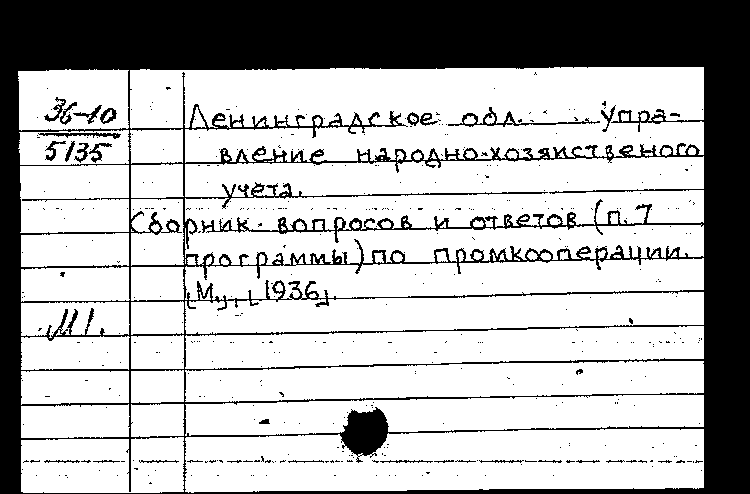 36-10
5135
Ленинградское обл. Упра-
вление народно-хозяиственого
учета.
Сборник вопросов и ответов (п. 7
программы) по промкооперации.
1936
М1.